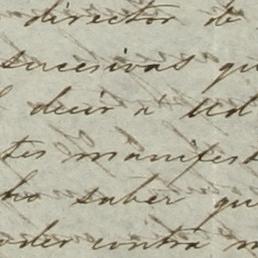 director de
sucesivas qu
decir a Ud
tes manifest
ho saber qu
oder contra m